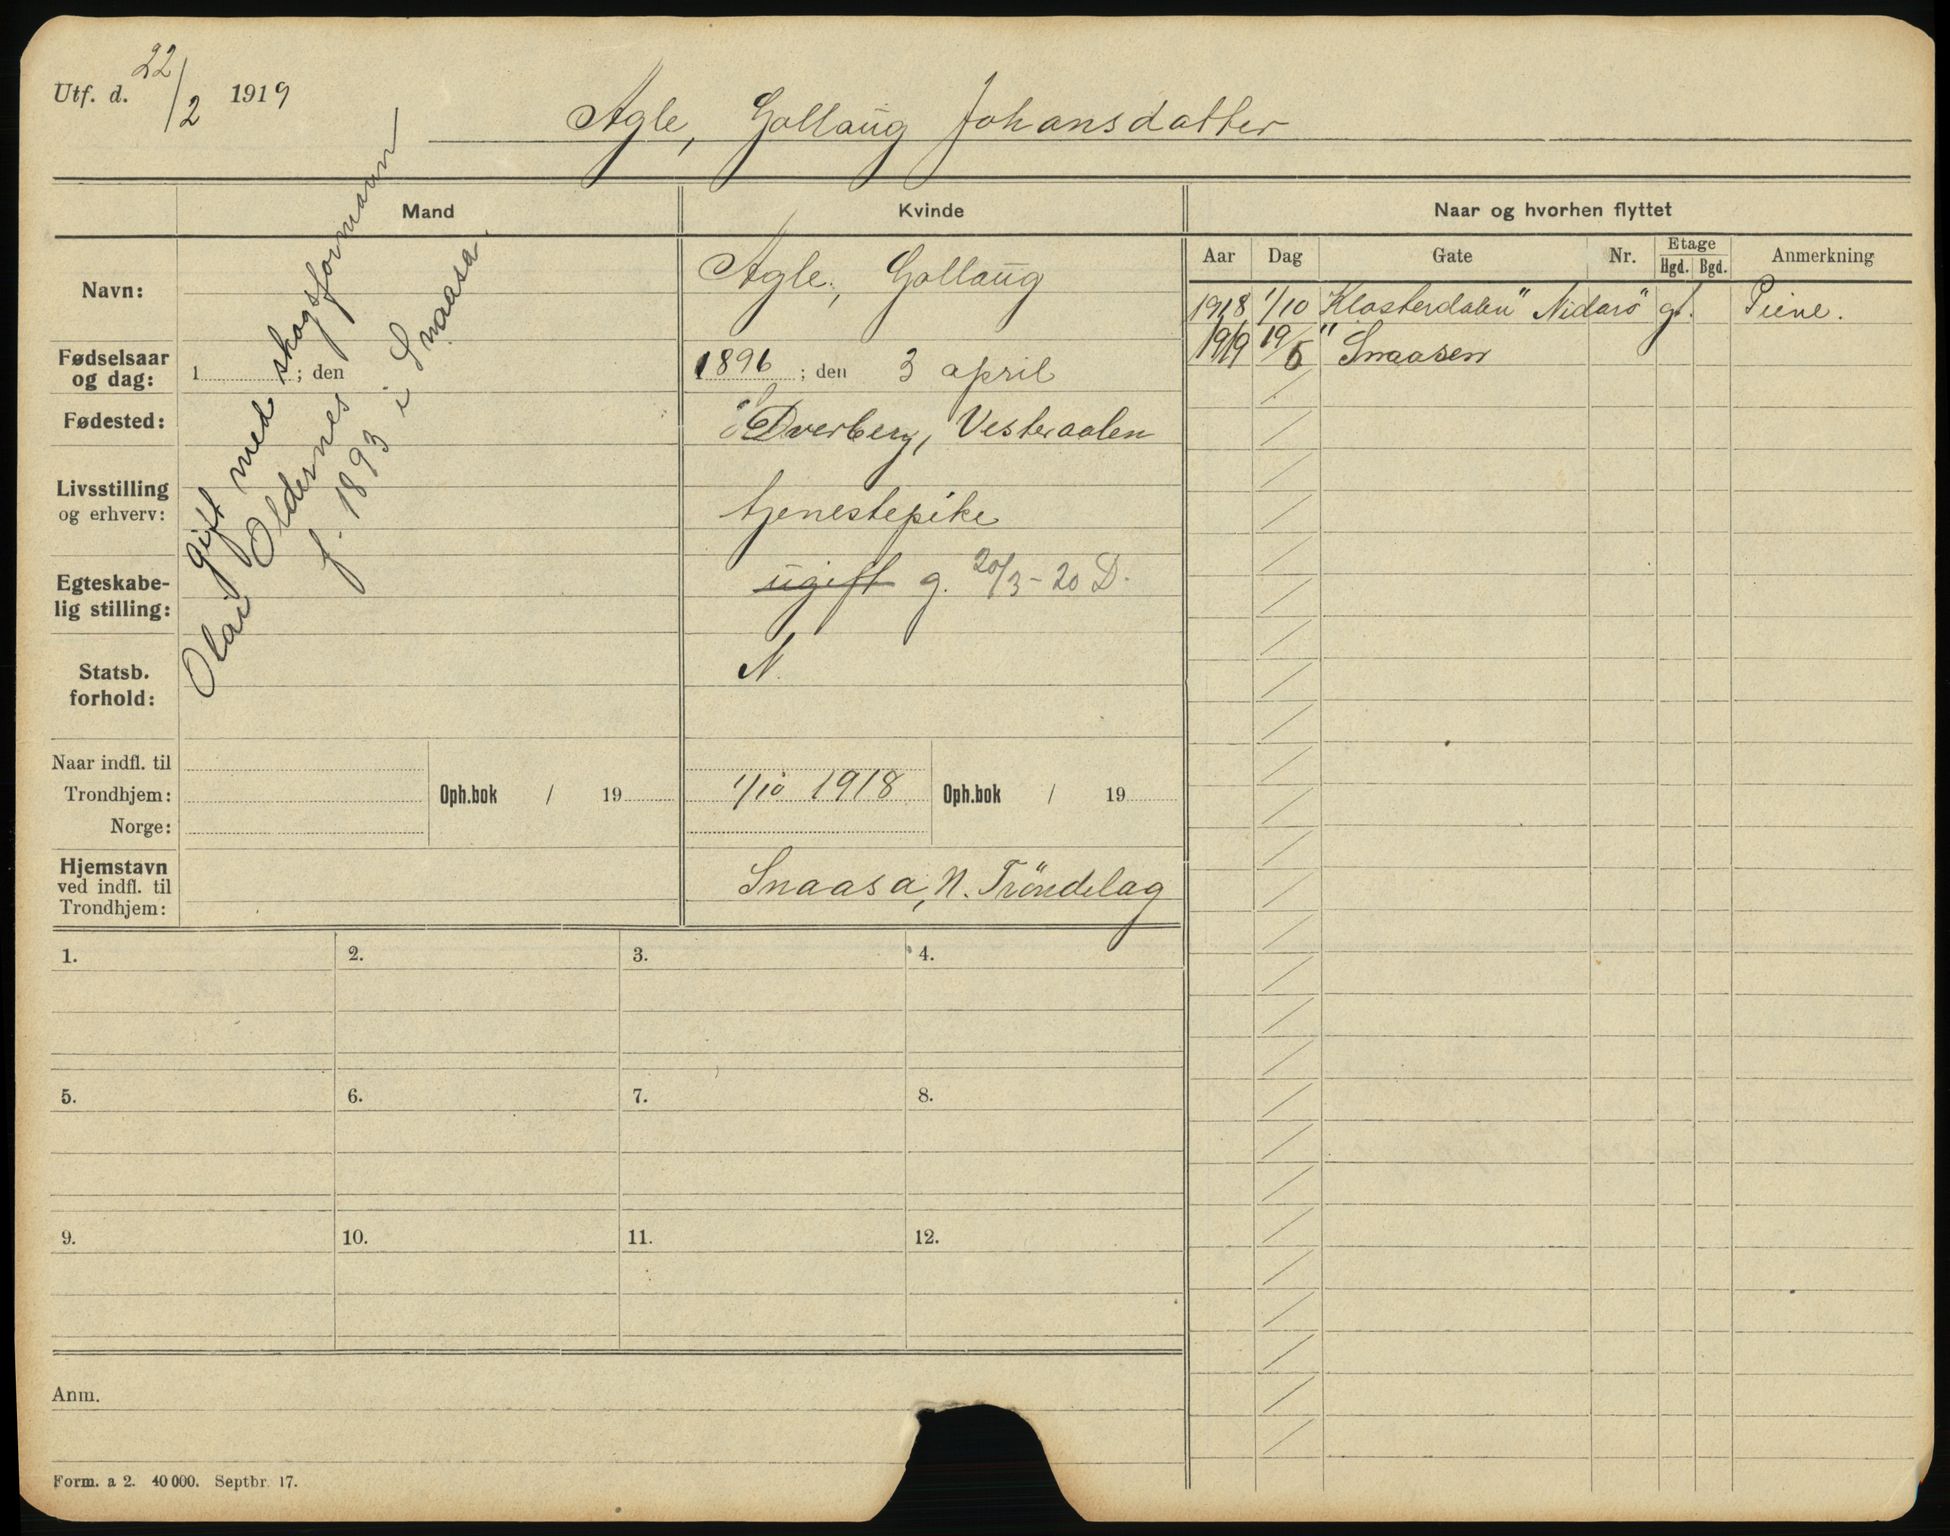 Utf. d. 22/2 1919
Agle, Gollaug Johansdatter
Mand
Kvinde
Naar og hvorhen flyttet
Aar Dag Gate Nr. Etage Hgd. Bgd. Anmerkning
Navn:
Agle, Gollaug
1918 1/10 "Klosterdalen" Nidarö gt. Piene.
1919 19/5 Snaasen
gift med skogsformann
Olai Oldernes
f. 1893 i Snaasa.
Fødselsaar
og dag:
1 ; den
1896 ; den 3 april
Fødested:
Dverberg, Vesteraalen
Livsstilling
og erhverv:
tjenestepike
Egteskabe-
lig stilling:
ugift g. 20/3-20 D.
Statsb.
forhold:
N.
Naar indfl. til
Trondhjem:
Norge:
Oph.bok / 19
1/10 1918
Oph.bok / 19
Hjemstavn
ved indfl. til
Trondhjem:
Snaasa, N. Tröndelag
1. 2. 3. 4.
5. 6. 7. 8.
9. 10. 11. 12.
Anm.
Form. a 2. 40 000. Septbr. 17.